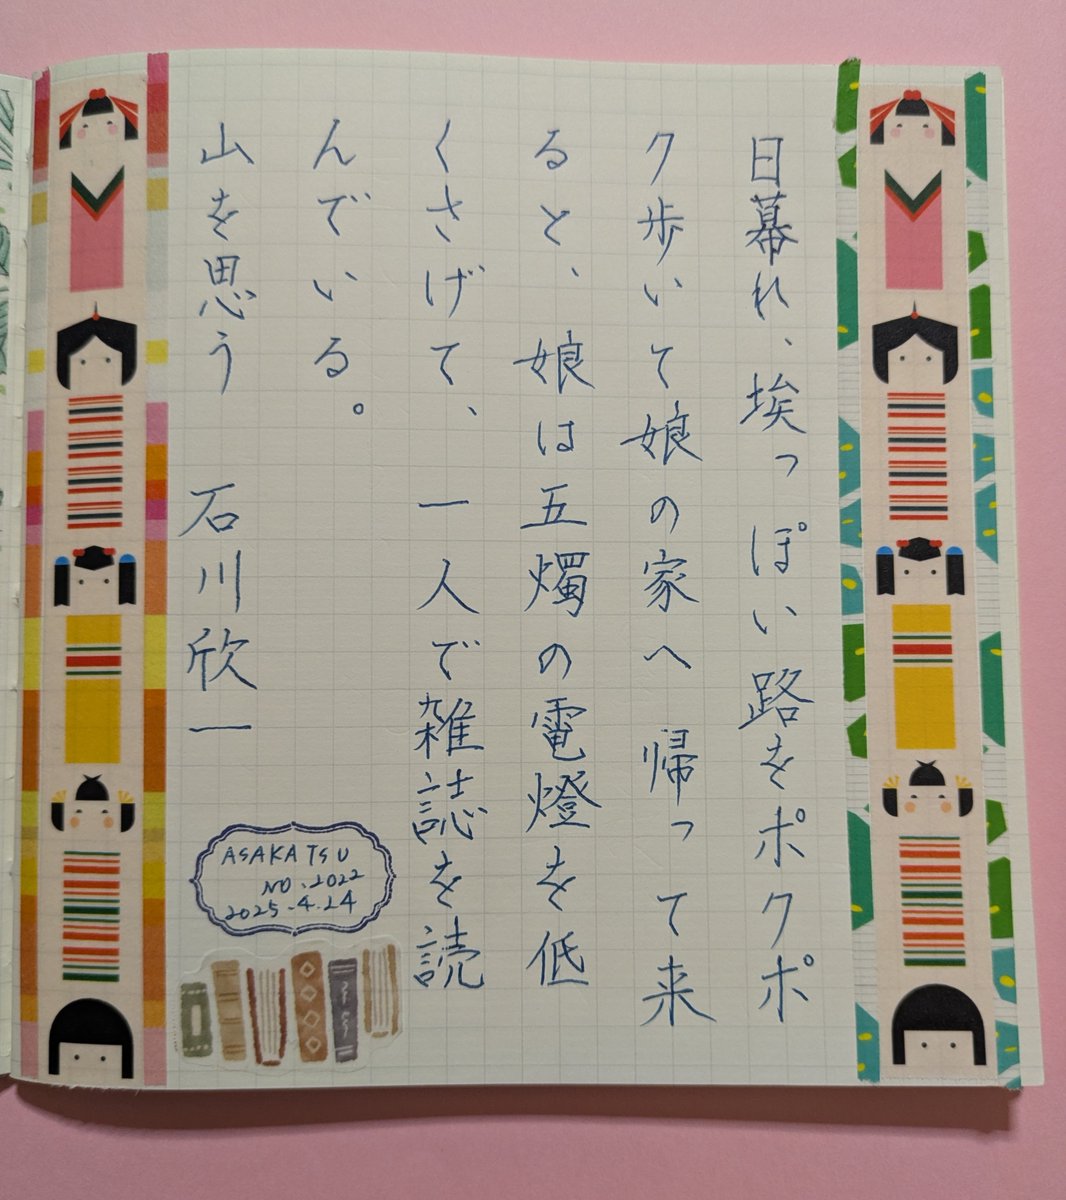 日幕れ、埃っぽい路をポクポ
ク歩いて娘の家へ帰って来
ると、娘は五燭の電燈を低
くさげて、一人で雑誌を読
んでいる。
山を思う　石川欣一
ASAKATSU
NO.2022
2025.4.24